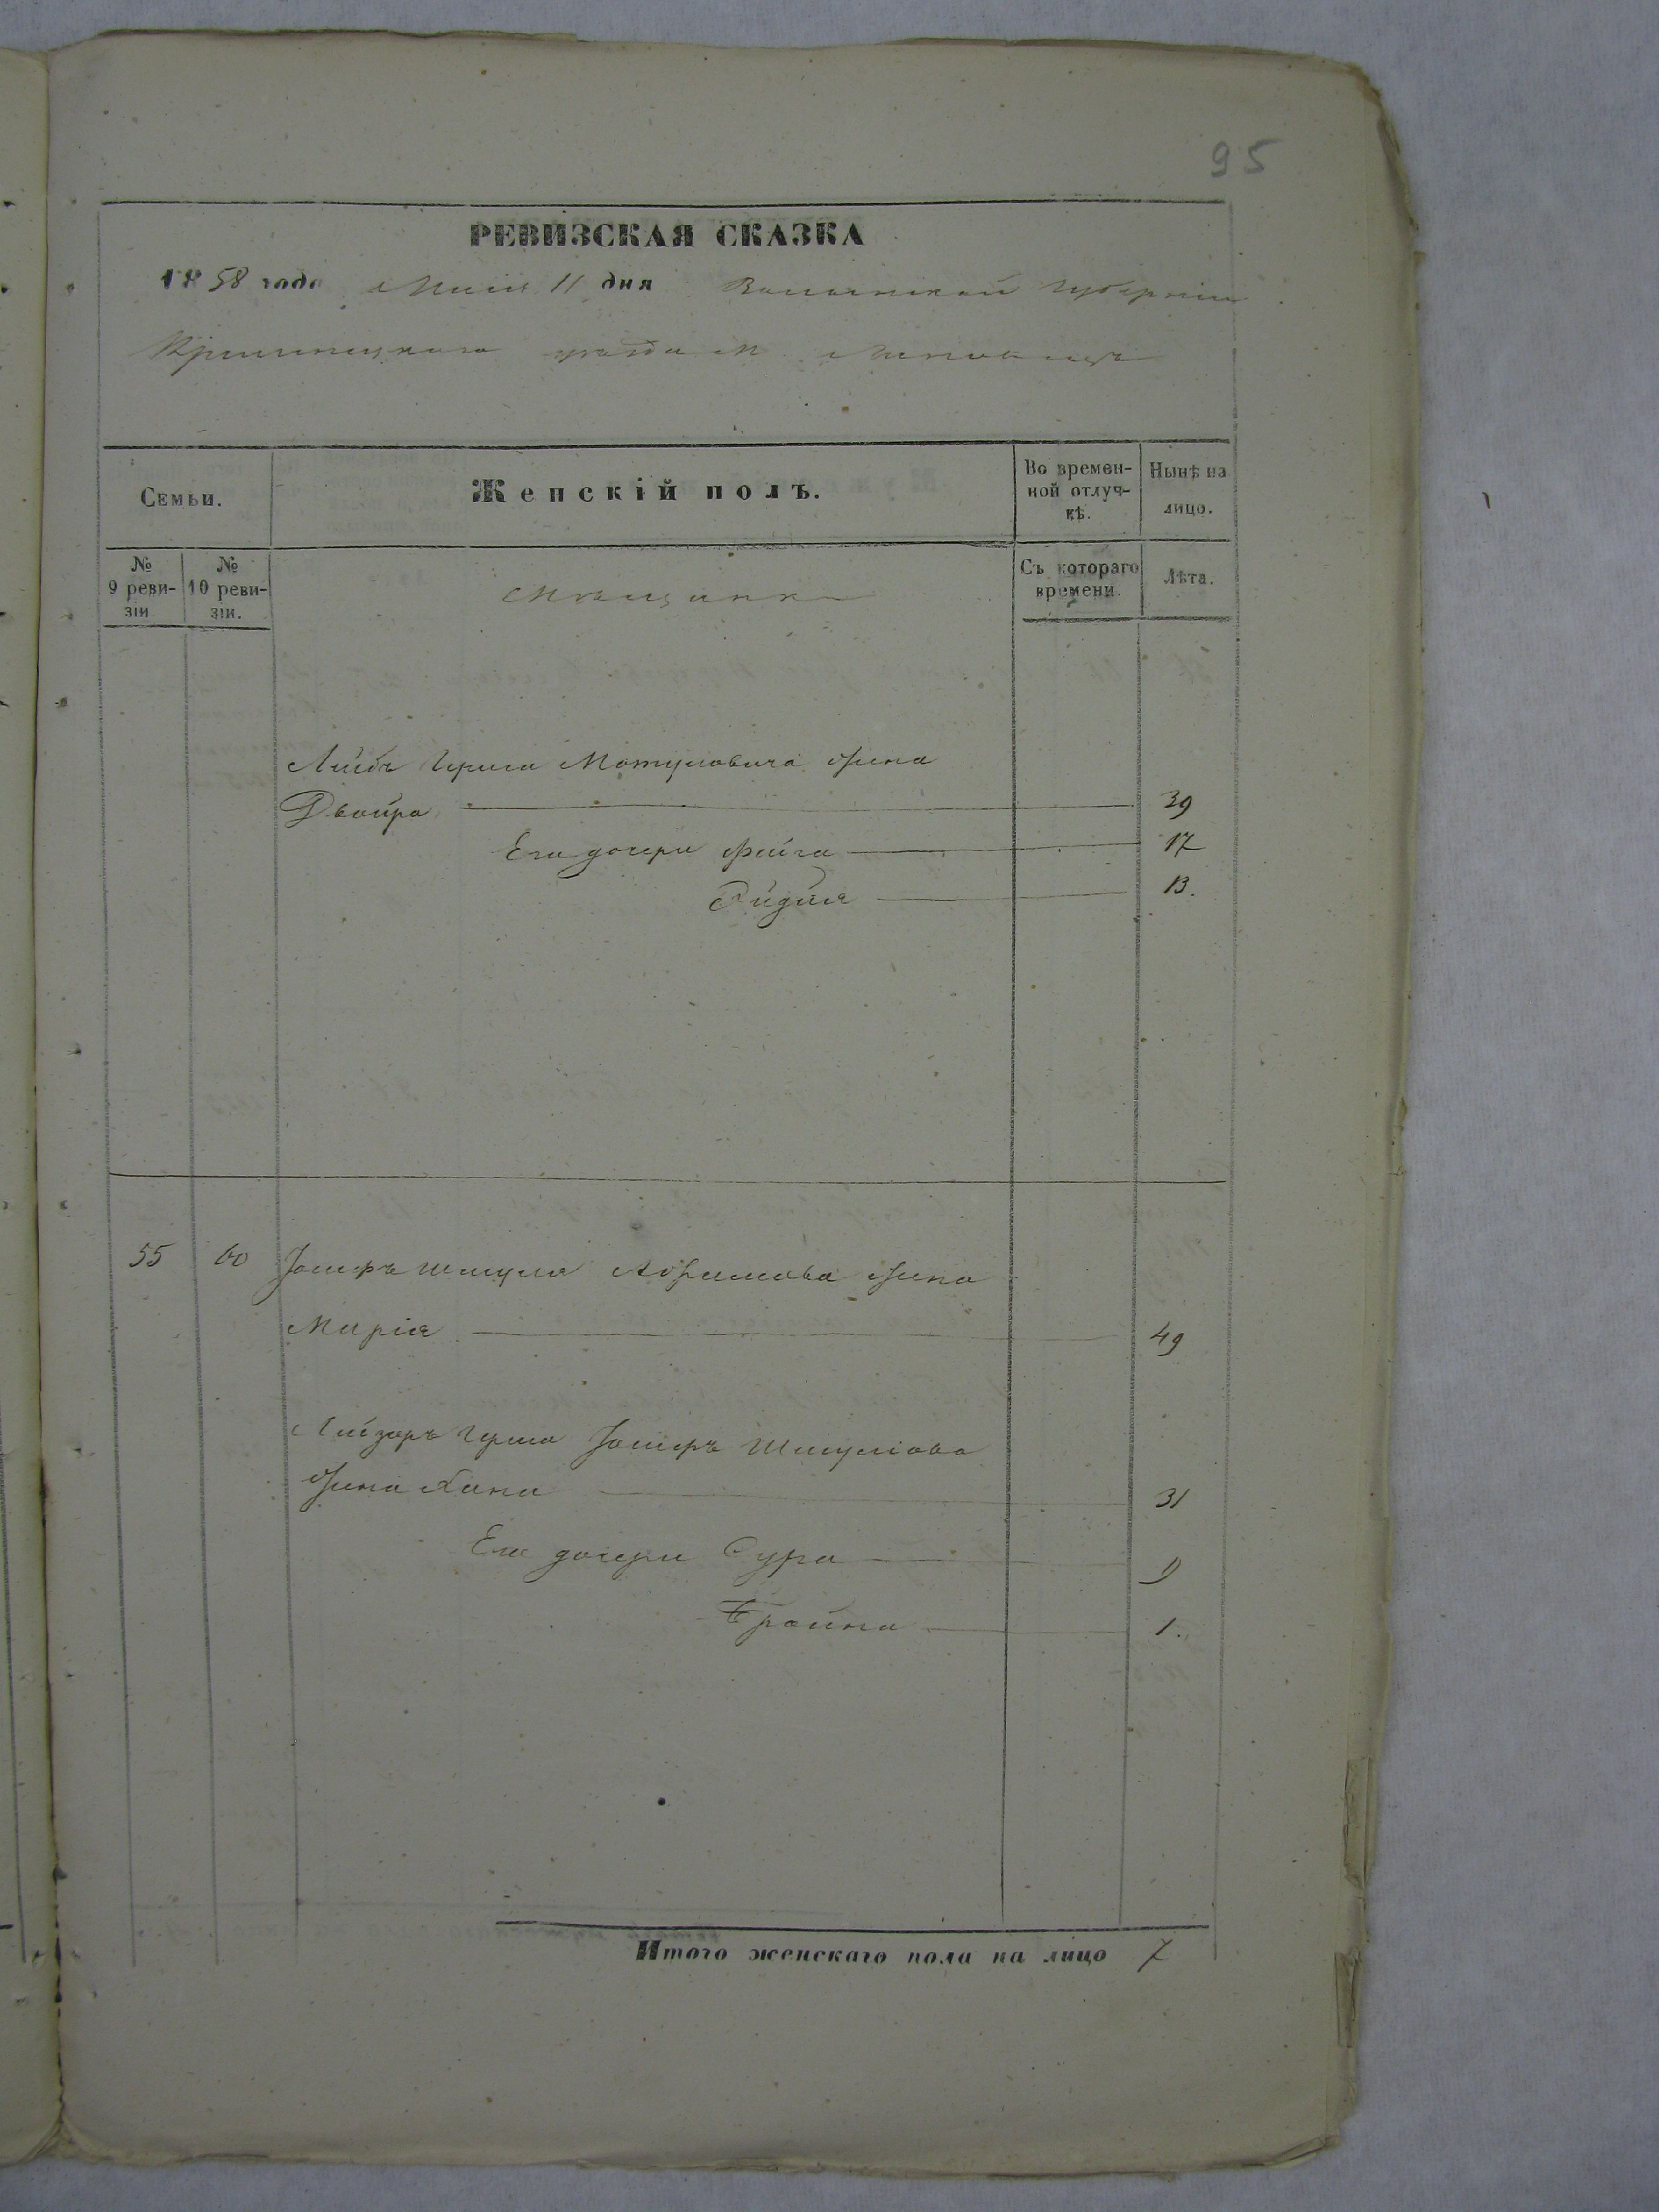 95
РЕВИЗСКАЯ СКАЗКА
1858 года Маія 11 дня Волынской губерніи
Кременецкого уезда М.
Семьи. Женскій полъ. Во времен-ной отлуч-кѣ. Нынѣ на лицо.
№ 9 реви-зіи № 10 реви-зіи. Мѣщанка Съ котораго времени. Лѣта.
Лейбъ Герша Мотулевича жена
Двойра 39
Его дочери Фейга 17
Эйдля 13.
55 60 Іосифъ Шмуля Абрамова жена
Марія 49
Лейзоръ Герша Іосифъ Шмулiова
жена Хана 31
Его дочери Сура 9
Бройна 1.
Итого женскаго пола на лицо 7